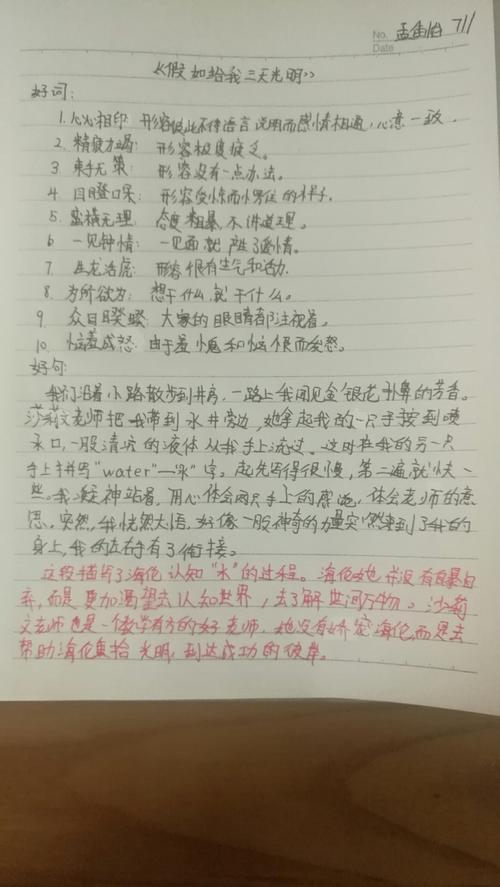 No. 孟
7/11
Date
《假如给我三天光明》
好词:
1. 心心相印 形容彼此不待语言说明而感情相通,心意一致.
2. 精疲力竭: 形容极度疲乏。
3. 束手无策: 形容没有一点办法。
4. 目瞪口呆: 形容受惊而愣住的样子.
5. 蛮横无理: 态度粗暴,不讲道理。
6 一见钟情: 一见面就产生了爱情。
7. 生龙活虎: 形容很有生气和活力.
8. 为所欲为: 想干什么,就干什么。
9 众目睽睽: 大家的眼睛都注视着。
10. 恼羞成怒: 由于羞愧和恼恨而发怒。
好句:
我们沿着小路散步到井房,一路上我闻见金银花扑鼻的芳香。
莎莉文老师把我带到水井旁边,她拿起我的一只手按到喷
水口,一股清凉的液体从我手上流过。这时在我的另一只
手上拼写"water"—"水"字。起先写得很慢,第二遍就快一
些。我凝神站着,用心体会两只手上的感觉,体会老师的意
思。突然,我恍然大悟,好像一股神奇的力量突然来到了我的
身上,我的左右手有了衔接。
这段描写了海伦认知"水"的过程。海伦她并没有自暴自
弃,而是更加渴望去认知世界,去了解世间万物。沙莉
文老师也是一个教学有方的好老师,她没有娇宠海伦,而是去
帮助海伦重拾光明,到达成功的彼岸。